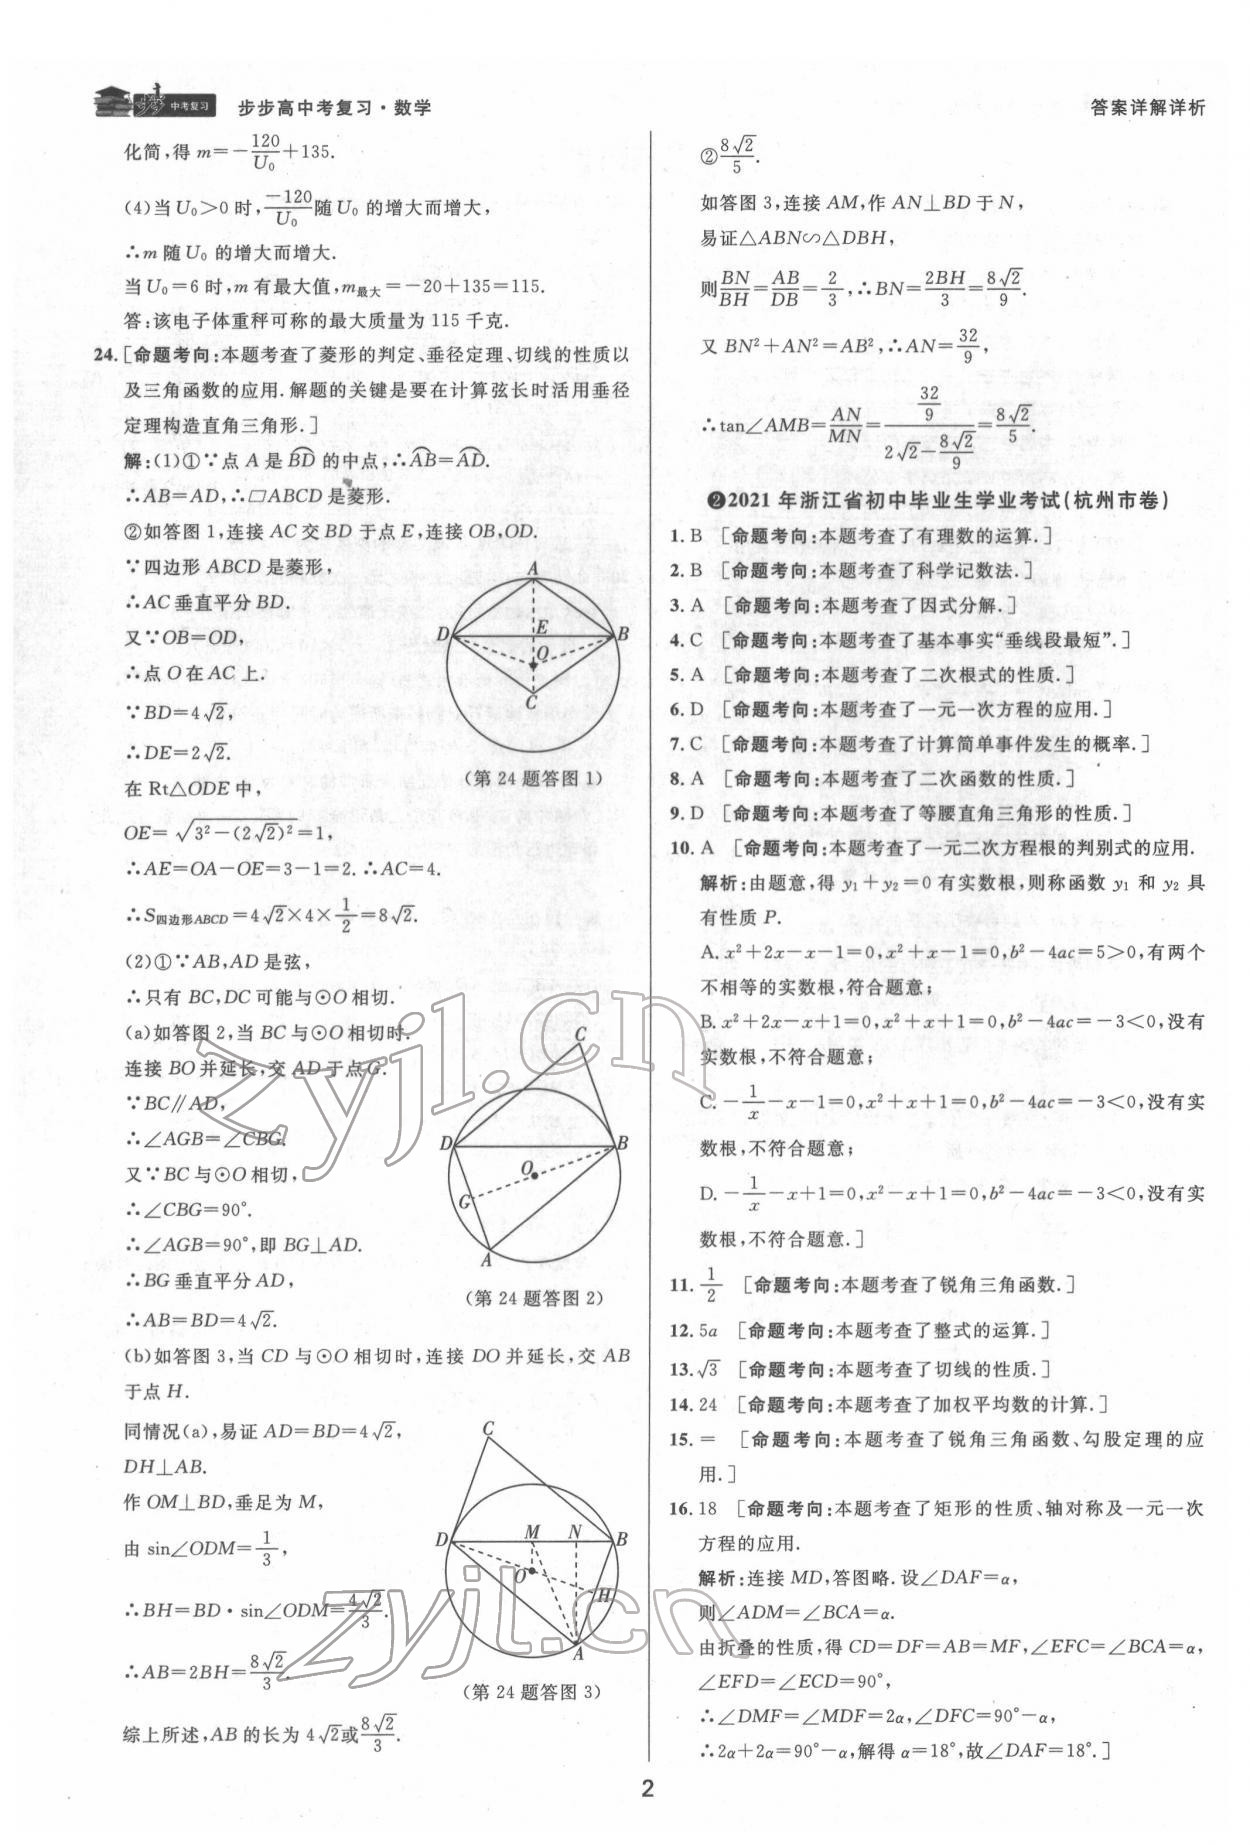 中考复习
步步高中考复习·数学
答案详解详析
化简,得 m=-120/U₀+135.
(4)当 U₀>0 时,-120/U₀随 U₀ 的增大而增大,
∴m 随 U₀ 的增大而增大.
当 U₀=6 时,m 有最大值,m最大=-20+135=115.
答:该电子体重秤可称的最大质量为 115 千克.
24.[命题考向:本题考查了菱形的判定、垂径定理、切线的性质以
及三角函数的应用.解题的关键是要在计算弦长时活用垂径
定理构造直角三角形.]
解:(1)①∵点 A 是⌒BD 的中点,∴⌒AB=⌒AD.
∴AB=AD,∴□ABCD 是菱形.
②如答图 1,连接 AC 交 BD 于点 E,连接 OB,OD.
∵四边形 ABCD 是菱形,
∴AC 垂直平分 BD.
又∵OB=OD,
∴点 O 在 AC 上.
∵BD=4√2,
∴DE=2√2.
在 Rt△ODE 中,
OE=√(3²-(2√2)²)=1,
∴AE=OA-OE=3-1=2.∴AC=4.
∴S四边形ABCD=4√2×4×1/2=8√2.
A
D
E
B
O
C
(第 24 题答图 1)
(2)①∵AB,AD 是弦,
∴只有 BC,DC 可能与⊙O 相切.
(a)如答图 2,当 BC 与⊙O 相切时.
连接 BO 并延长,交 AD 于点 G.
∵BC∥AD,
∴∠AGB=∠CBG.
又∵BC 与⊙O 相切,
∴∠CBG=90°.
∴∠AGB=90°,即 BG⊥AD.
∴BG 垂直平分 AD,
∴AB=BD=4√2.
C
D
B
O
G
A
(第 24 题答图 2)
(b)如答图 3,当 CD 与⊙O 相切时,连接 DO 并延长,交 AB
于点 H.
同情况(a),易证 AD=BD=4√2,
DH⊥AB.
作 OM⊥BD,垂足为 M,
由 sin∠ODM=1/3,
∴BH=BD·sin∠ODM=4√2/3.
∴AB=2BH=8√2/3.
综上所述,AB 的长为 4√2或8√2/3.
C
D
M
N
B
O
H
A
(第 24 题答图 3)
②8√2/5.
如答图 3,连接 AM,作 AN⊥BD 于 N,
易证△ABN∽△DBH,
则BN/BH=AB/DB=2/3,∴BN=2BH/3=8√2/9.
又 BN²+AN²=AB²,∴AN=32/9,
∴tan∠AMB=AN/MN=(32/9)/(2√2-8√2/9)=8√2/5.
❷2021 年浙江省初中毕业生学业考试(杭州市卷)
1. B [命题考向:本题考查了有理数的运算.]
2. B [命题考向:本题考查了科学记数法.]
3. A [命题考向:本题考查了因式分解.]
4. C [命题考向:本题考查了基本事实“垂线段最短”.]
5. A [命题考向:本题考查了二次根式的性质.]
6. D [命题考向:本题考查了一元一次方程的应用.]
7. C [命题考向:本题考查了计算简单事件发生的概率.]
8. A [命题考向:本题考查了二次函数的性质.]
9. D [命题考向:本题考查了等腰直角三角形的性质.]
10. A [命题考向:本题考查了一元二次方程根的判别式的应用.
解析:由题意,得 y₁+y₂=0 有实数根,则称函数 y₁ 和 y₂ 具
有性质 P.
A. x²+2x-x-1=0,x²+x-1=0,b²-4ac=5>0,有两个
不相等的实数根,符合题意;
B. x²+2x-x+1=0,x²+x+1=0,b²-4ac=-3<0,没有
实数根,不符合题意;
C. -1/x-x-1=0,x²+x+1=0,b²-4ac=-3<0,没有实
数根,不符合题意;
D. -1/x-x+1=0,x²-x+1=0,b²-4ac=-3<0,没有实
数根,不符合题意.]
11. 1/2 [命题考向:本题考查了锐角三角函数.]
12. 5a [命题考向:本题考查了整式的运算.]
13. √3 [命题考向:本题考查了切线的性质.]
14. 24 [命题考向:本题考查了加权平均数的计算.]
15. = [命题考向:本题考查了锐角三角函数、勾股定理的应
用.]
16. 18 [命题考向:本题考查了矩形的性质、轴对称及一元一次
方程的应用.
解析:连接 MD,答图略.设∠DAF=α,
则∠ADM=∠BCA=α.
由折叠的性质,得 CD=DF=AB=MF,∠EFC=∠BCA=α,
∠EFD=∠ECD=90°,
∴∠DMF=∠MDF=2α,∠DFC=90°-α,
∴2α+2α=90°-α,解得 α=18°,故∠DAF=18°.]
2
zyjl.cn
zyjl.cn